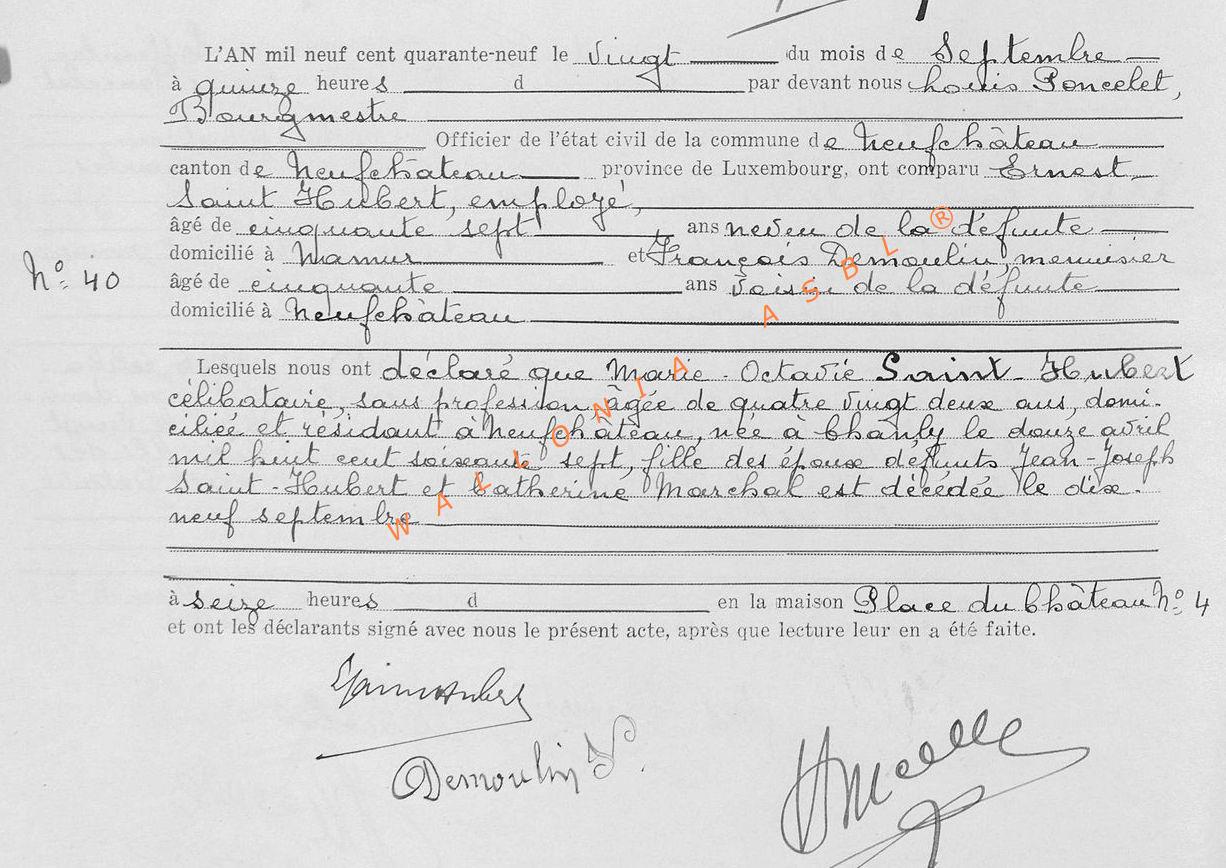 L'AN mil neuf cent quarante-neuf le vingt du mois de Septembre
à quinze heures d par devant nous Louis Poncelet,
Bourgmestre
Officier de l'état civil de la commune de Neufchâteau
canton de Neufchâteau province de Luxembourg, ont comparu Ernest
Saint Hubert, employé,
âgé de cinquante sept ans neveu de la défunte
domicilié à Namur et François Demoulin, menuisier
N° 40
âgé de cinquante ans voisin de la défunte
domicilié à Neufchâteau
Lesquels nous ont déclaré que Marie-Octavie Saint-Hubert
célibataire, sans profession, âgée de quatre vingt deux ans, domi-
ciliée et résidant à Neufchâteau, née à Chanly le douze avril
mil huit cent soixante sept, fille des époux défunts Jean-Joseph
Saint-Hubert et Catherine Marchal est décédée le dix-
neuf septembre
à seize heures d en la maison Place du Château N° 4
et ont les déclarants signé avec nous le présent acte, après que lecture leur en a été faite.
SaintHubert
Demoulin F
WALLONIA ASBL®